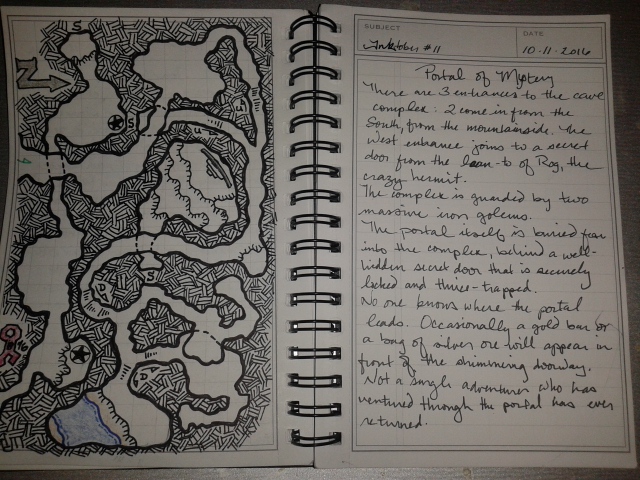 S
N
S
D
S
SUBJECT
Inktober #11
DATE
10-11-2016
Portal of Mystery
There are 3 entrances to the cave
complex: 2 come in from the
South, from the mountainside. The
West entrance joins to a secret
door from the lean-to of Rog, the
crazy hermit.
The complex is guarded by two
massive iron golems.
The portal itself is buried far
into the complex, behind a well-
hidden secret door that is securely
locked and thrice-trapped.
No one knows where the portal
leads. Occasionally a gold bar or
a bag of silver ore will appear in
front of the shimmering doorway.
Not a single adventurer who has
ventured through the portal has ever
returned.